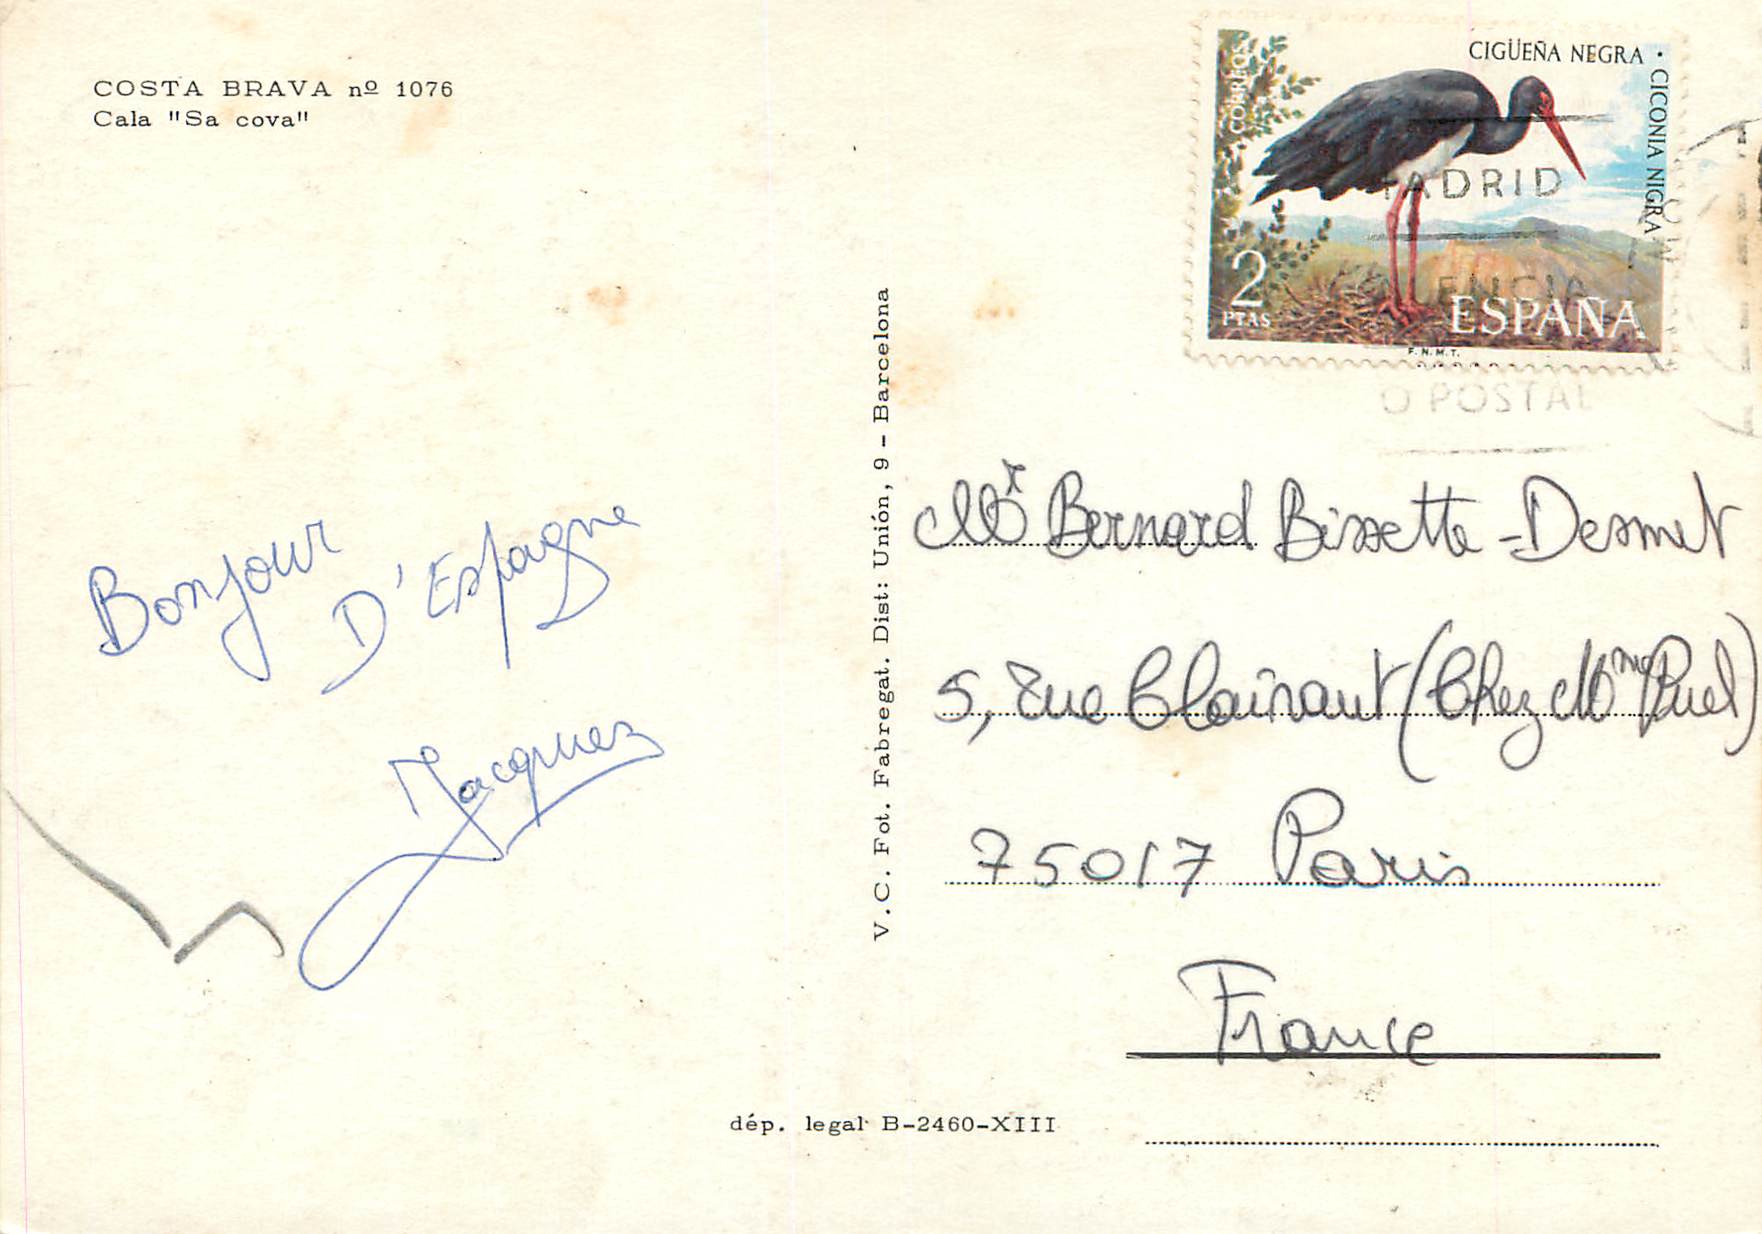 COSTA BRAVA nº 1076
Cala "Sa cova"
CIGÜEÑA NEGRA ·
CICONIA NIGRA
CORREOS
2
PTAS
ESPAÑA
F.N.M.T.
MADRID
O POSTAL
Bonjour
D'Espagne
Jacques
V.C. Fot. Fabregat. Dist: Unión, 9 - Barcelona
Mr Bernard Bissette-Desmet
5, rue Clairaut (Chez Mme Puel)
75017 Paris
France
dép. legal B-2460-XIII